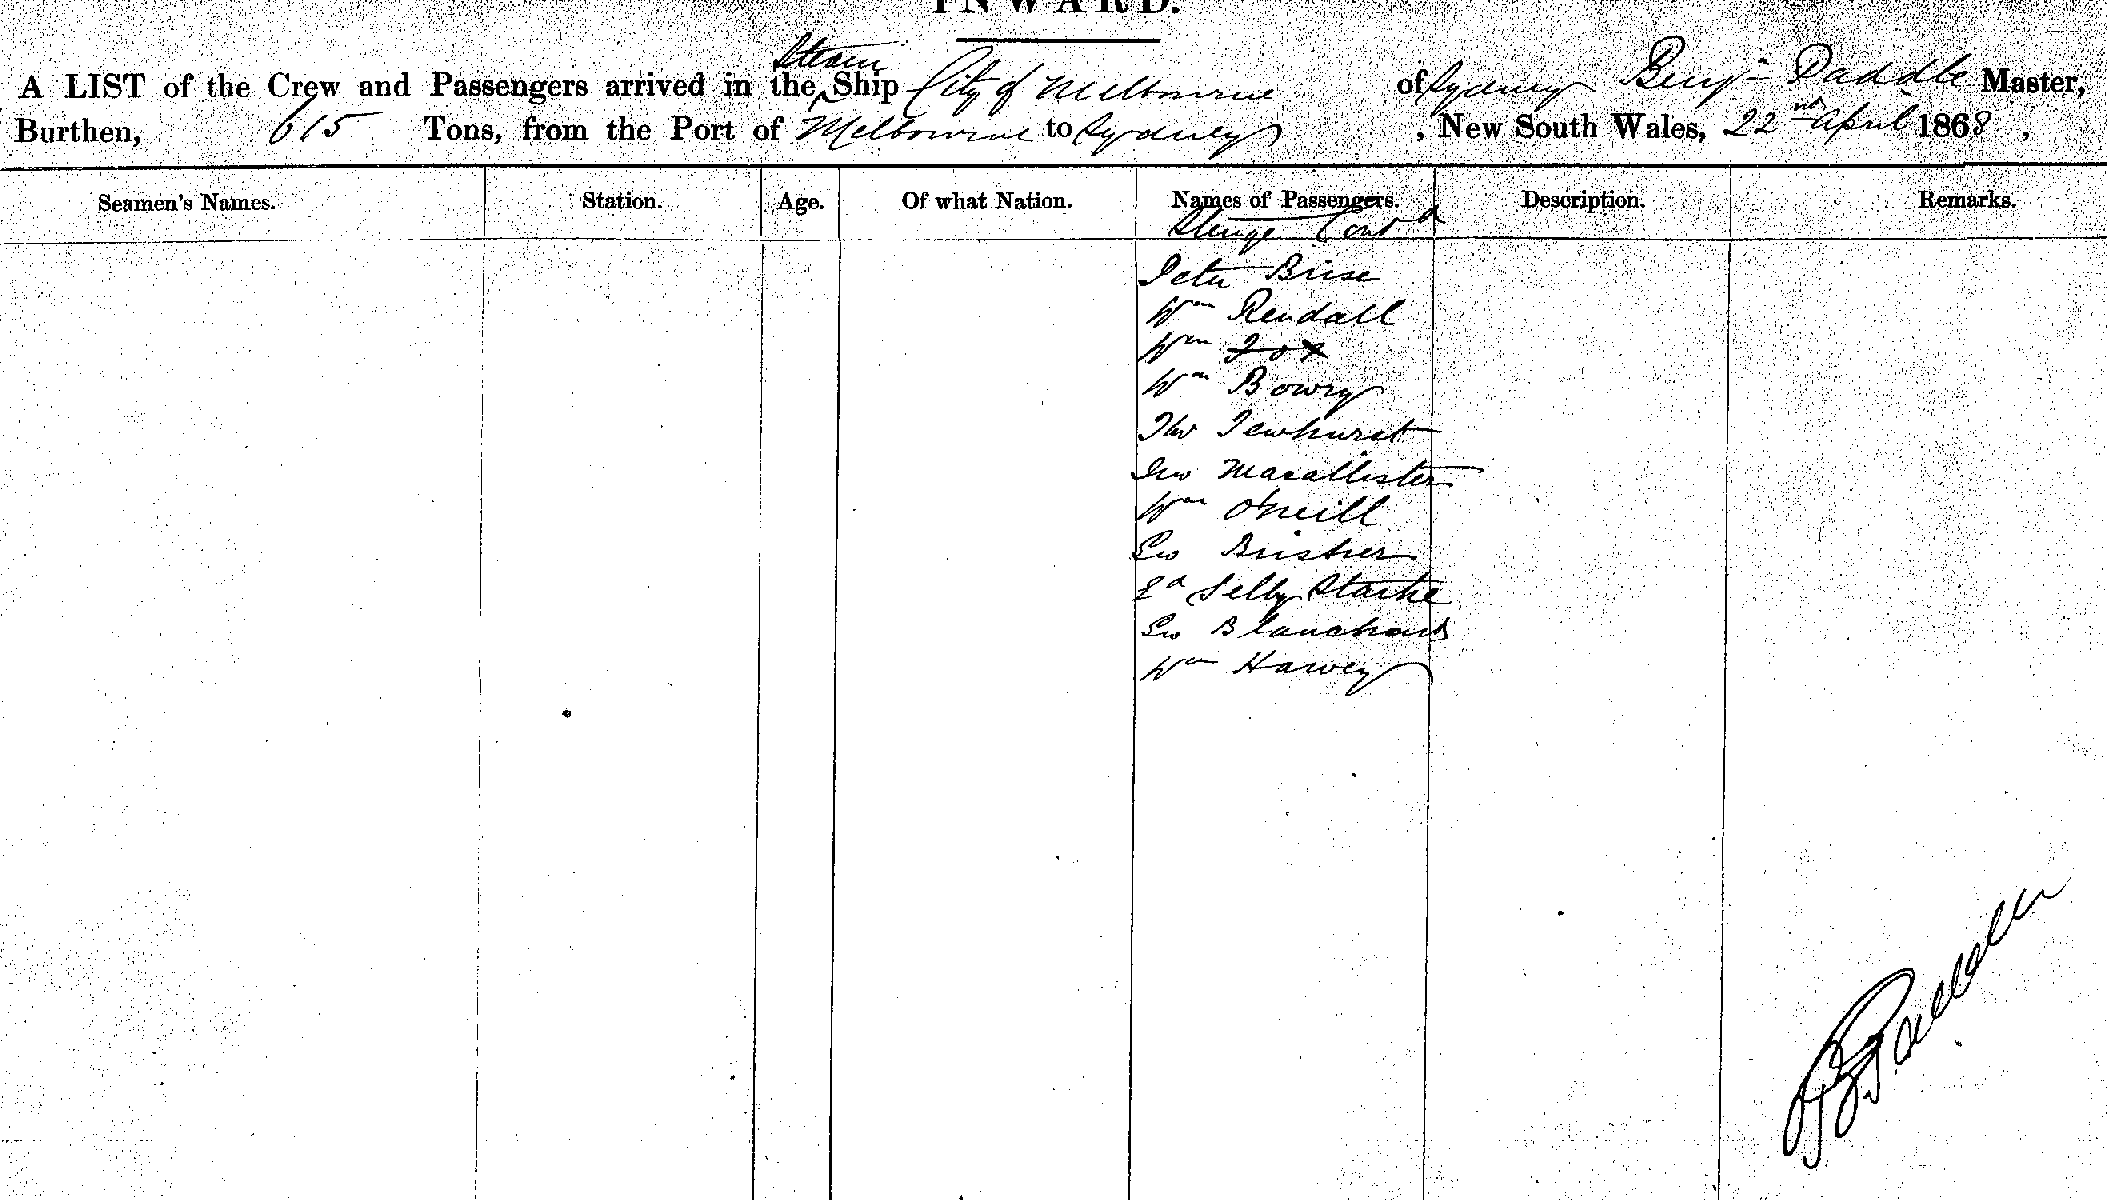 INWARD.
A LIST of the Crew and Passengers arrived in the Steam Ship City of Melbourne of Sydney Benj- Paddle Master,
Burthen, 615 Tons, from the Port of Melbourne to Sydney , New South Wales, 22nd April 1868 ,
Seamen's Names. Station. Age. Of what Nation. Names of Passengers. Description. Remarks.
Steerage Contd
Peter Brise
Wm Rendall
Wm Fox
Wm Bowry
Tho
Macallister
Wm O'Neill
Geo
Ed Selby Starke
Geo Blanchard
Wm Harvey